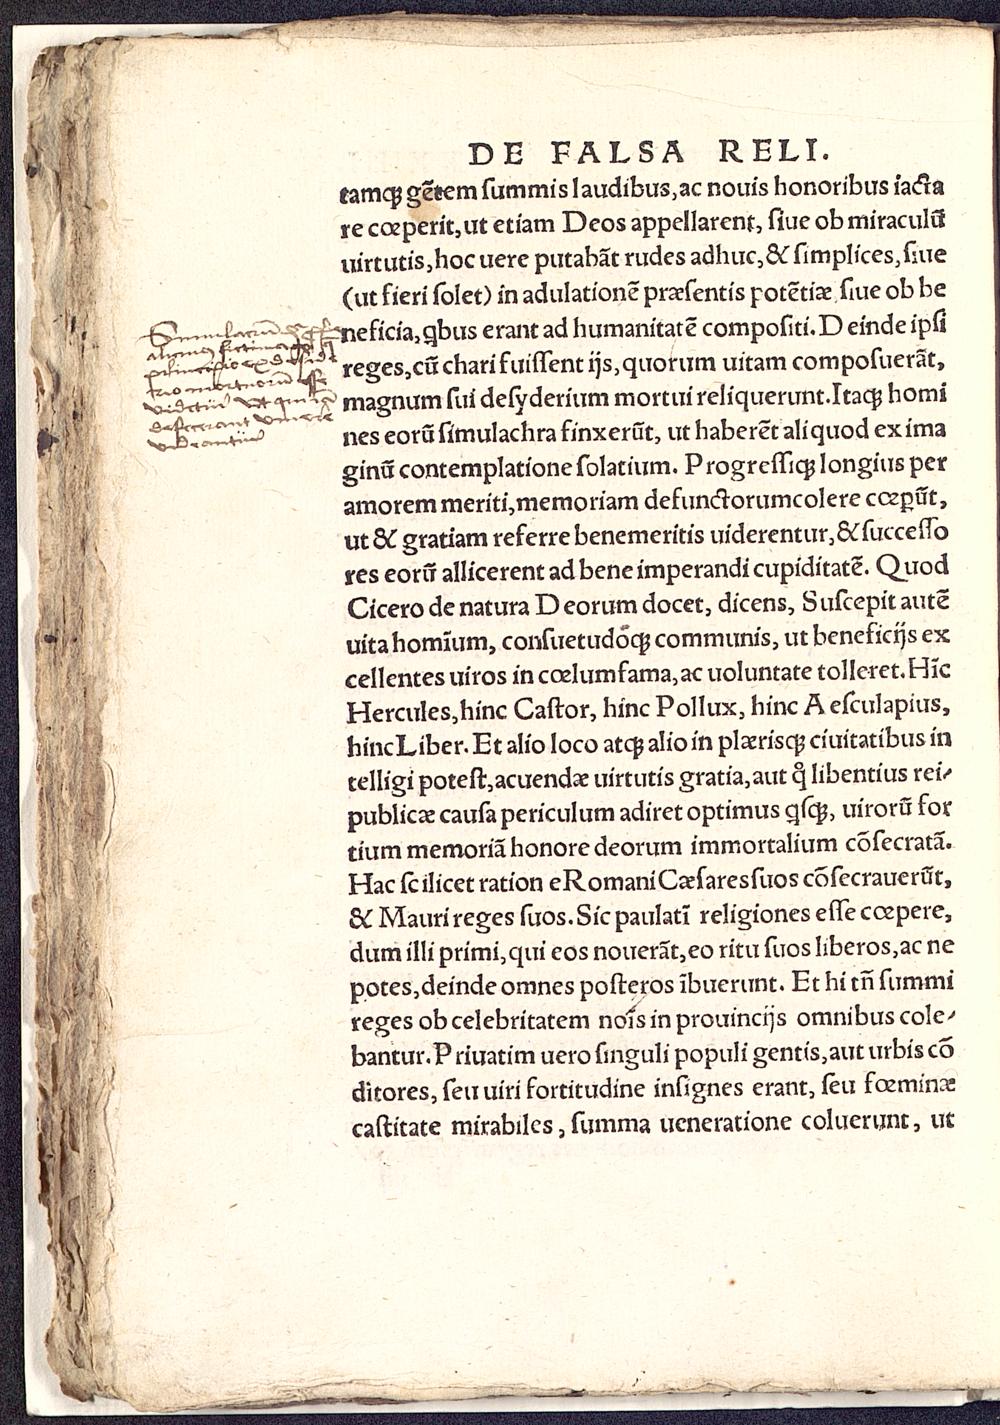 DE FALSA RELI.
tamqꝫ gẽtem ſummis laudibus, ac nouis honoribus iacta
re cœperit, ut etiam Deos appellarent, ſiue ob miraculũ
uirtutis, hoc uere putabãt rudes adhuc, & ſimplices, ſiue
(ut fieri ſolet) in adulationẽ præſentis potẽtiæ, ſiue ob be
neficia, ꝗbus erant ad humanitatẽ compoſiti. Deinde ipſi
reges, cũ chari fuiſſent ijs, quorum uitam compoſuerãt,
magnum ſui deſyderium mortui reliquerunt. Itaqꝫ homi
nes eorũ ſimulachra finxerũt, ut haberẽt aliquod ex ima
ginũ contemplatione ſolatium. Progreſſiqꝫ longius per
amorem meriti, memoriam defunctorum colere cœpꝑũt,
ut & gratiam referre benemeritis uiderentur, & ſucceſſo
res eorũ allicerent ad bene imperandi cupiditatẽ. Quod
Cicero de natura Deorum docet, dicens, Suſcepit autẽ
uita homĩum, conſuetudoqꝫ communis, ut beneficijs ex
cellentes uiros in cœlum fama, ac uoluntate tolleret. Hĩc
Hercules, hinc Caſtor, hinc Pollux, hinc Aeſculapius,
hinc Liber. Et alio loco atqꝫ alio in plæriſqꝫ ciuitatibus in
telligi poteſt, acuendæ uirtutis gratia, aut q̊ libentius rei-
publicæ cauſa periculum adiret optimus ꝗſqꝫ, uirorũ for
tium memoriã honore deorum immortalium cõſecratã.
Hac ſcilicet ratione Romani Cæſares ſuos cõſecrauerũt,
& Mauri reges ſuos. Sic paulatĩ religiones eſſe cœpere,
dum illi primi, qui eos nouerãt, eo ritu ſuos liberos, ac ne
potes, deinde omnes poſteros ĩbuerunt. Et hi tñ ſummi
reges ob celebritatem noĩs in prouincijs omnibus cole-
bantur. Priuatim uero ſinguli populi gentis, aut urbis cõ
ditores, ſeu uiri fortitudine inſignes erant, ſeu fœminæ
caſtitate mirabiles, ſumma ueneratione coluerunt, ut